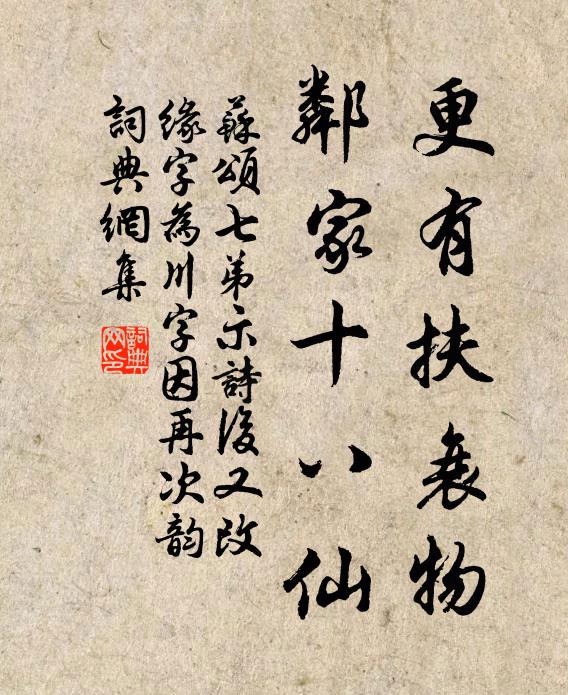 更有扶衰物
鄰家十八仙
蘇頌七弟示詩後又改
緣字為川字因再次韵
詞典網集
詞典网印